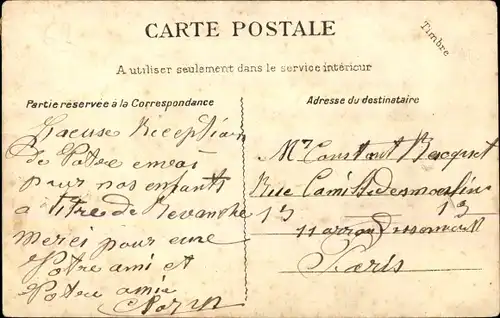 CARTE POSTALE
Timbre
A utiliser seulement dans le service intérieur
Partie réservée à la Correspondance
J'accuse Reception
de Votre envoi
pour nos enfants
a titre de Revanche
Merci pour eux
Votre ami et
Votre amie
Adresse du destinataire
Mr Constant Becquet
Rue Camille desmoulins
13 13
11 arrondissement
Paris